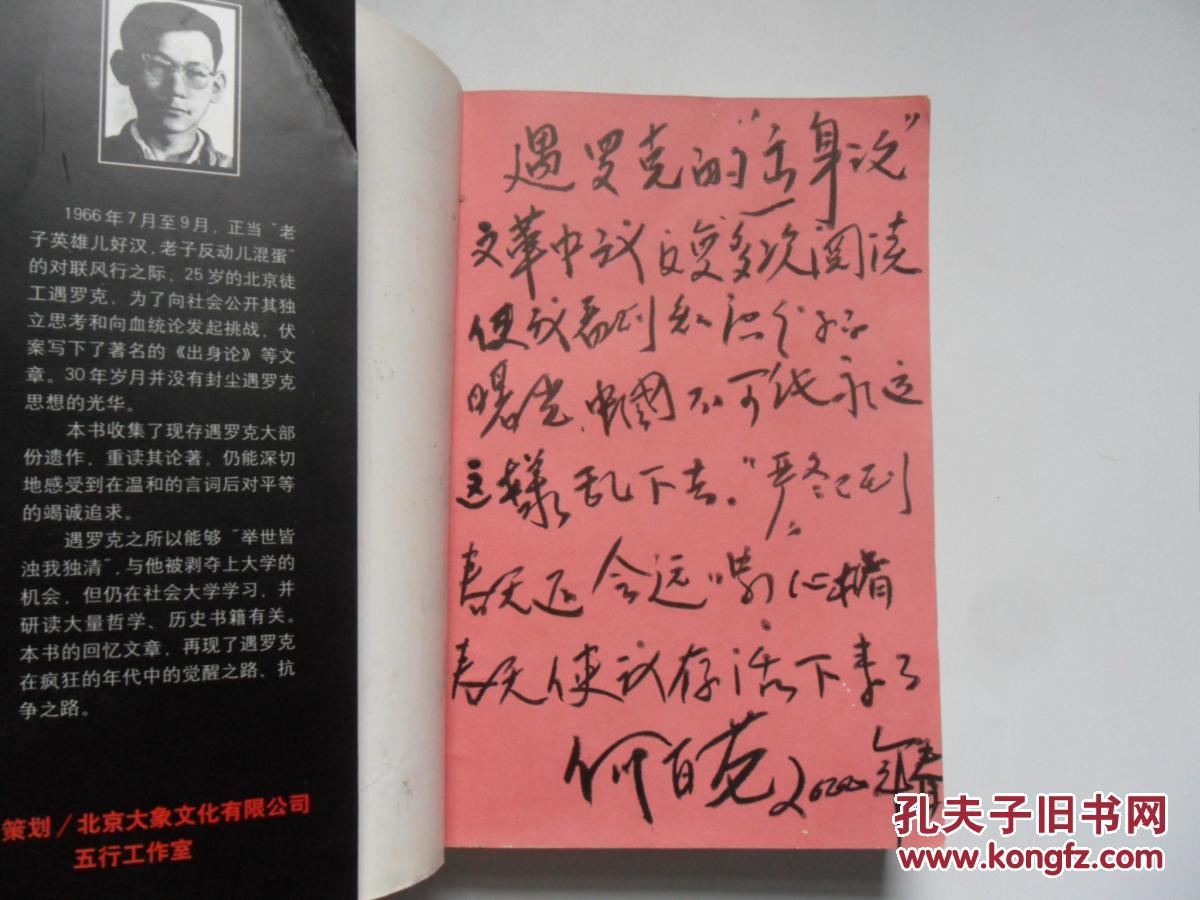 1966年7月至9月，正当“老
子英雄儿好汉，老子反动儿混蛋”
的对联风行之际，25岁的北京徒
工遇罗克，为了向社会公开其独
立思考和向血统论发起挑战，伏
案写下了著名的《出身论》等文
章。30年岁月并没有封尘遇罗克
思想的光华。
本书收集了现存遇罗克大部
份遗作，重读其论著，仍能深切
地感受到在温和的言词后对平等
的竭诚追求。
遇罗克之所以能够“举世皆
浊我独清”，与他被剥夺上大学的
机会，但仍在社会大学学习，并
研读大量哲学、历史书籍有关。
本书的回忆文章，再现了遇罗克
在疯狂的年代中的觉醒之路、抗
争之路。
策划／北京大象文化有限公司
五行工作室
遇罗克的“出身论”
文革中我反复多次阅读
使我看到知识分子的
曙光，中國不可能永远
这樣乱下去。“严冬已到
春天还会远嗎”心揣
春天使我存活下来了
何百克 2000
孔夫子旧书网
www.kongfz.com